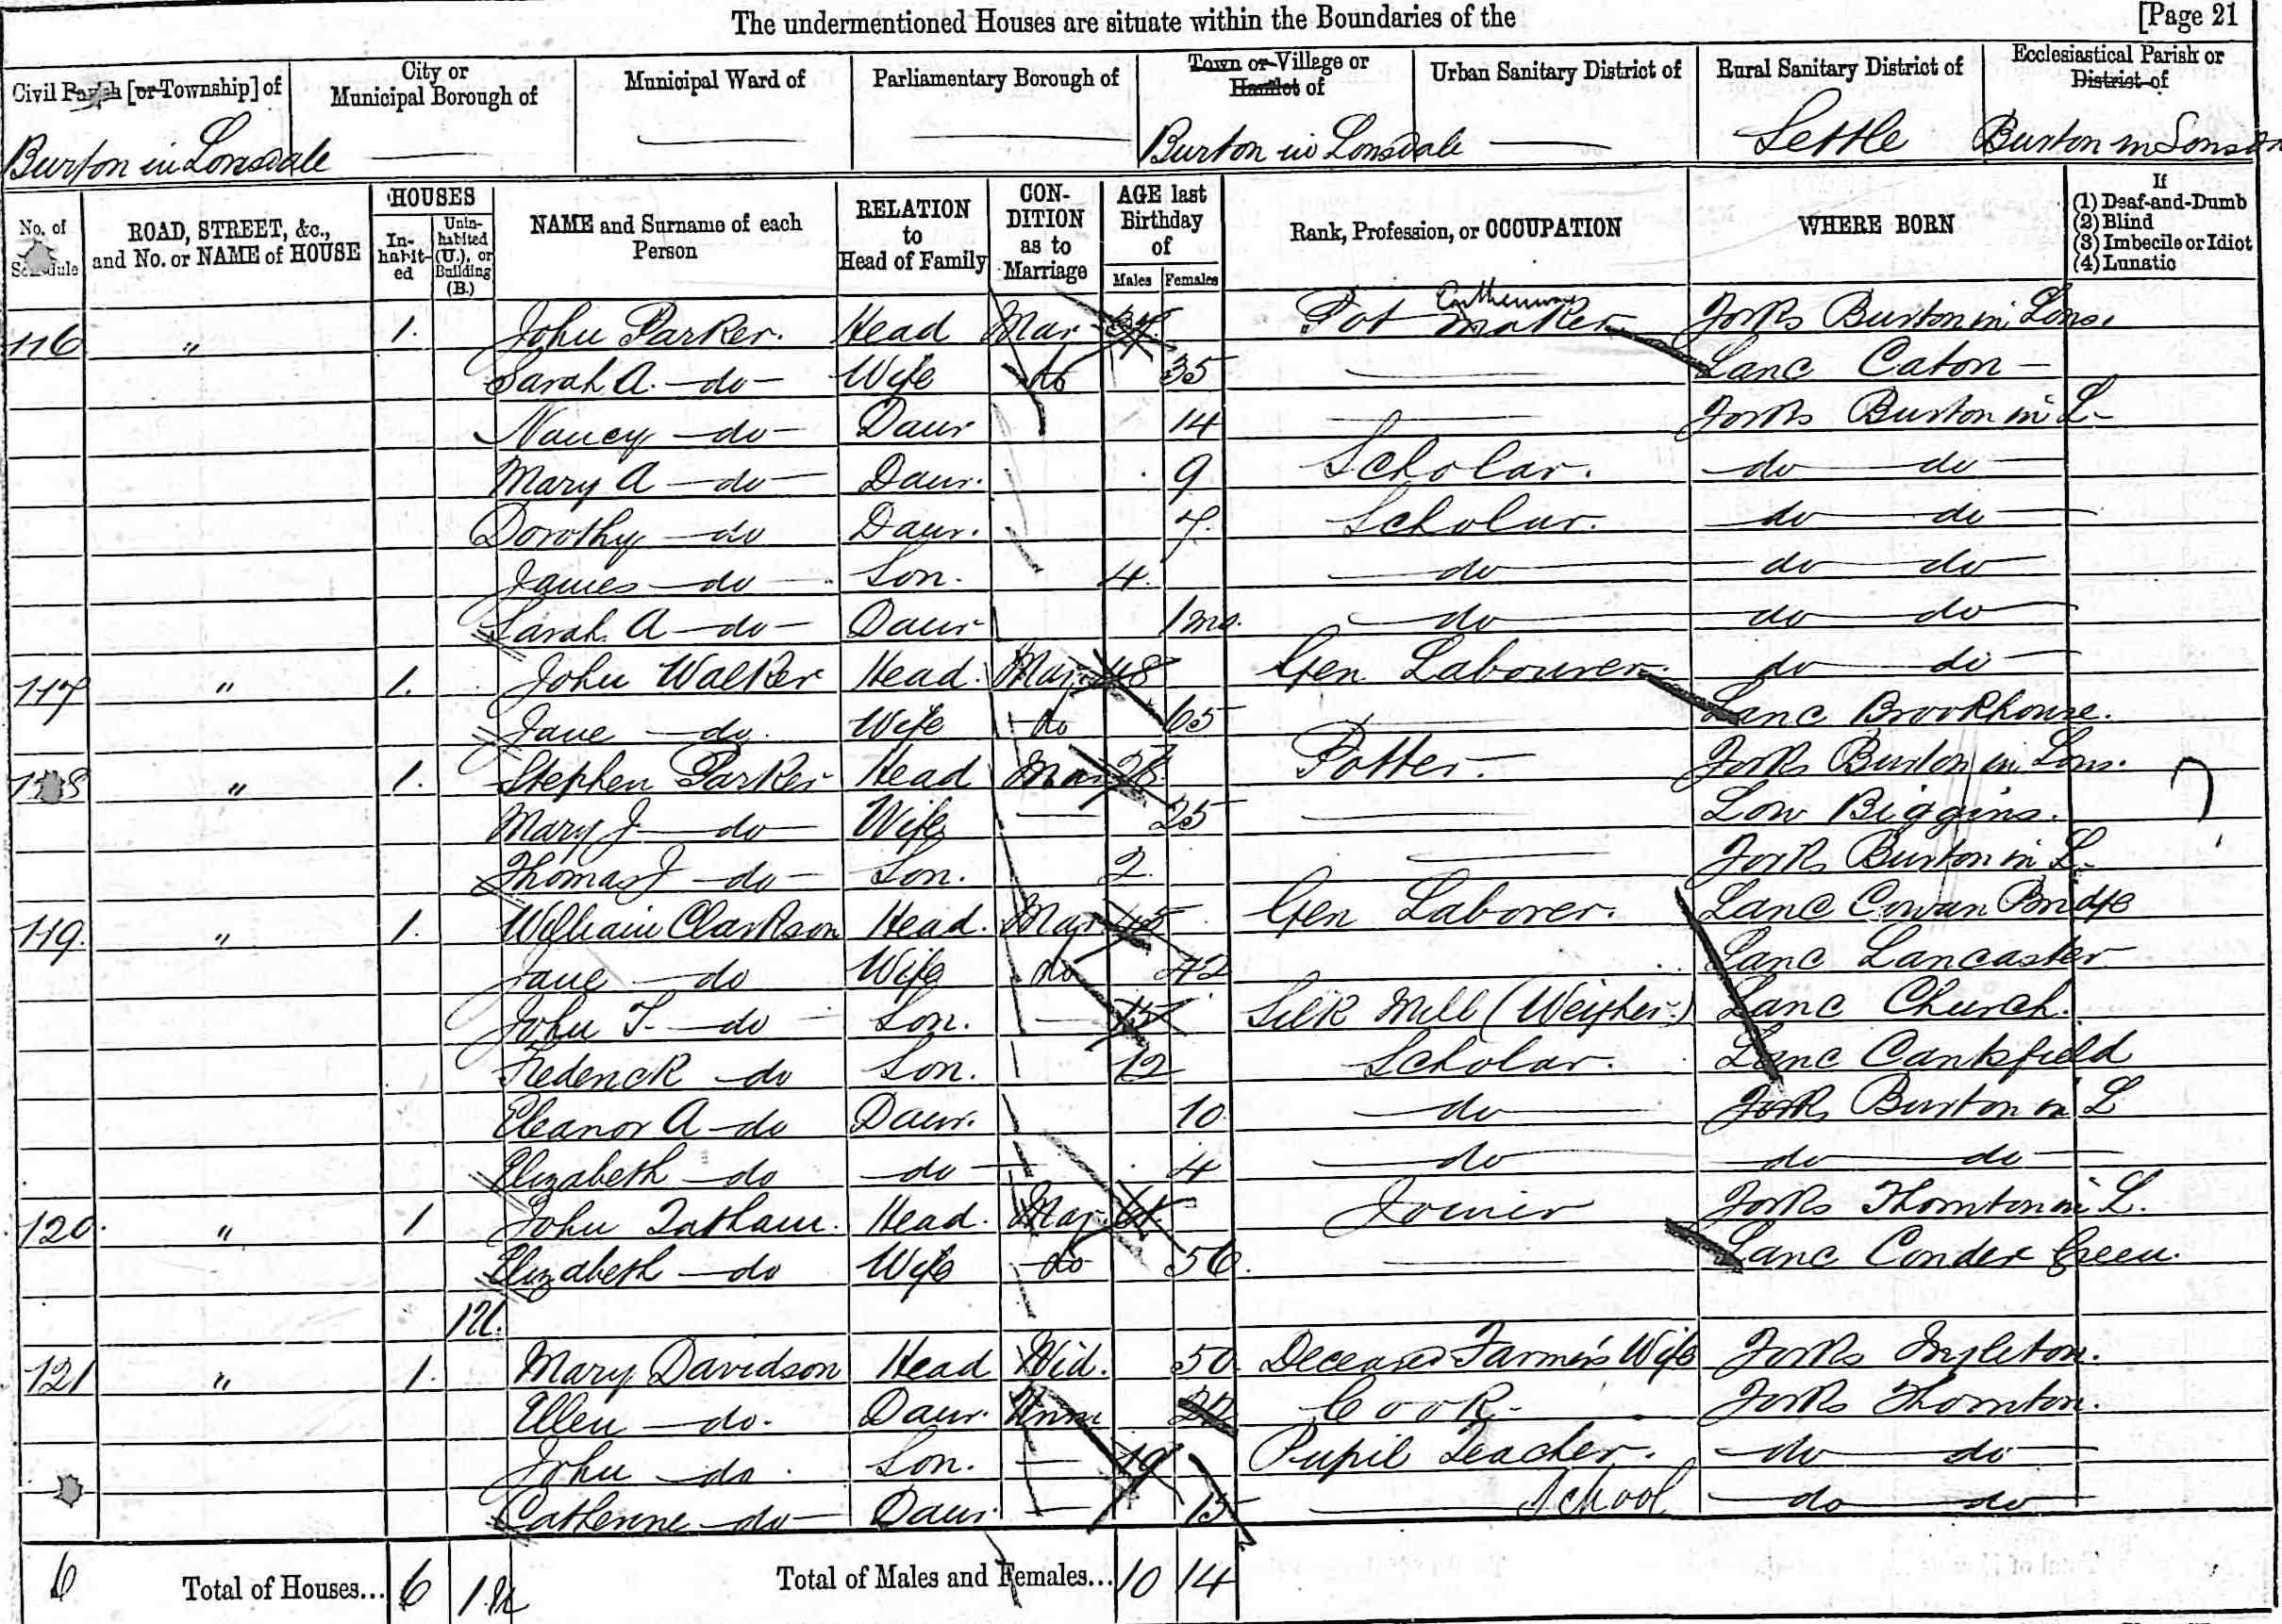 The undermentioned Houses are situate within the Boundaries of the [Page 21
Civil Parish [or Township] of City or Municipal Borough of Municipal Ward of Parliamentary Borough of Town or Village or Hamlet of Urban Sanitary District of Rural Sanitary District of Ecclesiastical Parish or District of
Burton in Lonsdale — — — Burton in Lonsdale — Settle Burton in Lonsda
No. of Schedule ROAD, STREET, &c., and No. or NAME of HOUSE HOUSES Inhabited Uninhabited (U.), or Building (B.) NAME and Surname of each Person RELATION to Head of Family CONDITION as to Marriage AGE last Birthday of Males Females Rank, Profession, or OCCUPATION WHERE BORN If (1) Deaf-and-Dumb (2) Blind (3) Imbecile or Idiot (4) Lunatic
116 " 1. John Parker. Head Mar Pot maker Yorks Burton in Lons.
Sarah A. — do — Wife do 35 — Lanc Caton —
Nancy — do — Daur 14 — Yorks Burton in L —
Mary A — do — Daur. 9 Scholar. do do
Dorothy — do Daur. 7. Scholar. do do
James — do — Son. 4. do do do
Sarah A — do — Daur 1 mo. do do do
117 " 1. John Walker Head. Mar 48 Gen Labourer. do do
Jane — do. Wife do 65 — Lanc Brookhouse.
118 " 1. Stephen Parker Head Mar 28 Potter. Yorks Burton in Lons.
Mary J — do — Wife — 25 — Low Biggins.
Thomas J — do — Son. 2. — Yorks Burton in L.
119. " 1. William Clarkson Head. Mar 45 Gen Laborer. Lanc Cowan Bridge
Jane — do Wife do 42 Lanc Lancaster
John T. — do Son. — 15 Silk Mill (Weigher.) Lanc Church.
Frederick — do Son. 12 Scholar. Lanc Cantsfield
Eleanor A — do Daur. 10. do Yorks Burton in L
Elizabeth — do — do — 4 do do do
120. " 1 John Tatham. Head. Mar. 61. Joiner Yorks Thornton in L.
Elizabeth — do Wife do 56. — Lanc Conder Green.
1 U.
121 " 1. Mary Davidson Head Wid. 50. Deceased Farmer's Wife Yorks Ingleton.
Ellen — do. Daur. Unm Cook. Yorks Thornton.
John — do. Son. — 19 Pupil Teacher. do do
Catherine — do — Daur. — 15 — School do do
6 Total of Houses... 6 1 U Total of Males and Females... 10 14